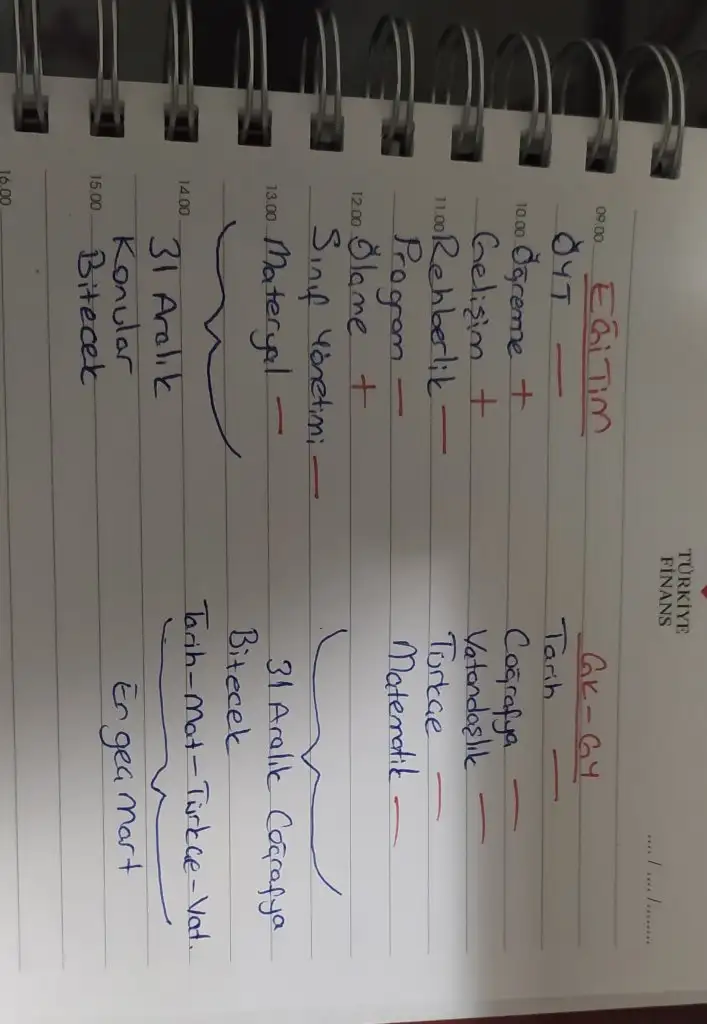 TÜRKİYE
FİNANS
.... / .... /........
09.00
EĞİTİM
ÖYT —
10.00 Öğreme +
Gelişim +
11.00 Rehberlik —
Program —
12.00 Ölçme +
Sınıf Yönetimi —
13.00 Materyal —
14.00
31 Aralık
Konular
15.00
Bitecek
16.00
GK-GY
Tarih —
Coğrafya —
Vatandaşlık —
Türkçe —
Matematik —
31 Aralık Coğrafya
Bitecek
Tarih-Mat-Türkçe-Vat.
En geç Mart